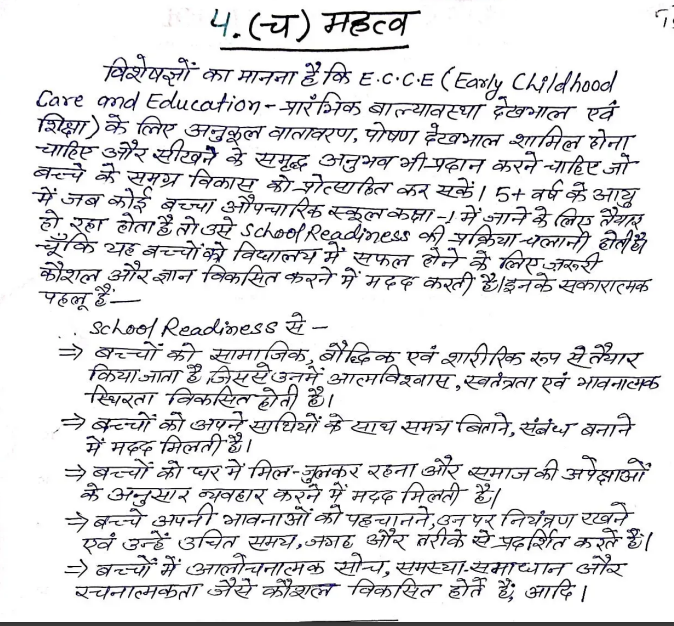 4. (च) महत्व
विशेषज्ञों का मानना है कि E.C.C.E (Early Childhood
Care and Education - प्रारंभिक बाल्यावस्था देखभाल एवं
शिक्षा) के लिए अनुकूल वातावरण, पोषण देखभाल शामिल होना
चाहिए और सीखने के समृद्ध अनुभव भी प्रदान करने चाहिए जो
बच्चे के समग्र विकास को प्रोत्साहित कर सकें। 5+ वर्ष के आयु
में जब कोई बच्चा औपचारिक स्कूल कक्षा-1 में जाने के लिए तैयार
हो रहा होता है तो उसे School Readiness की प्रक्रिया चलानी होती है।
चूँकि यह बच्चों को विद्यालय में सफल होने के लिए ज़रूरी
कौशल और ज्ञान विकसित करने में मदद करती है। इनके सकारात्मक
पहलू हैं —
School Readiness से -
⇒ बच्चों को सामाजिक, बौद्धिक एवं शारीरिक रूप से तैयार
किया जाता है जिससे उनमें आत्मविश्वास, स्वतंत्रता एवं भावनात्मक
स्थिरता विकसित होती है।
⇒ बच्चों को अपने साथियों के साथ समय बिताने, संबंध बनाने
में मदद मिलती है।
⇒ बच्चों को घर में मिल-जुलकर रहना और समाज की अपेक्षाओं
के अनुसार व्यवहार करने में मदद मिलती है।
⇒ बच्चे अपनी भावनाओं को पहचानने, उन पर नियंत्रण रखने
एवं उन्हें उचित समय, जगह और तरीके से प्रदर्शित करते हैं।
⇒ बच्चों में आलोचनात्मक सोच, समस्या-समाधान और
रचनात्मकता जैसे कौशल विकसित होते हैं, आदि।